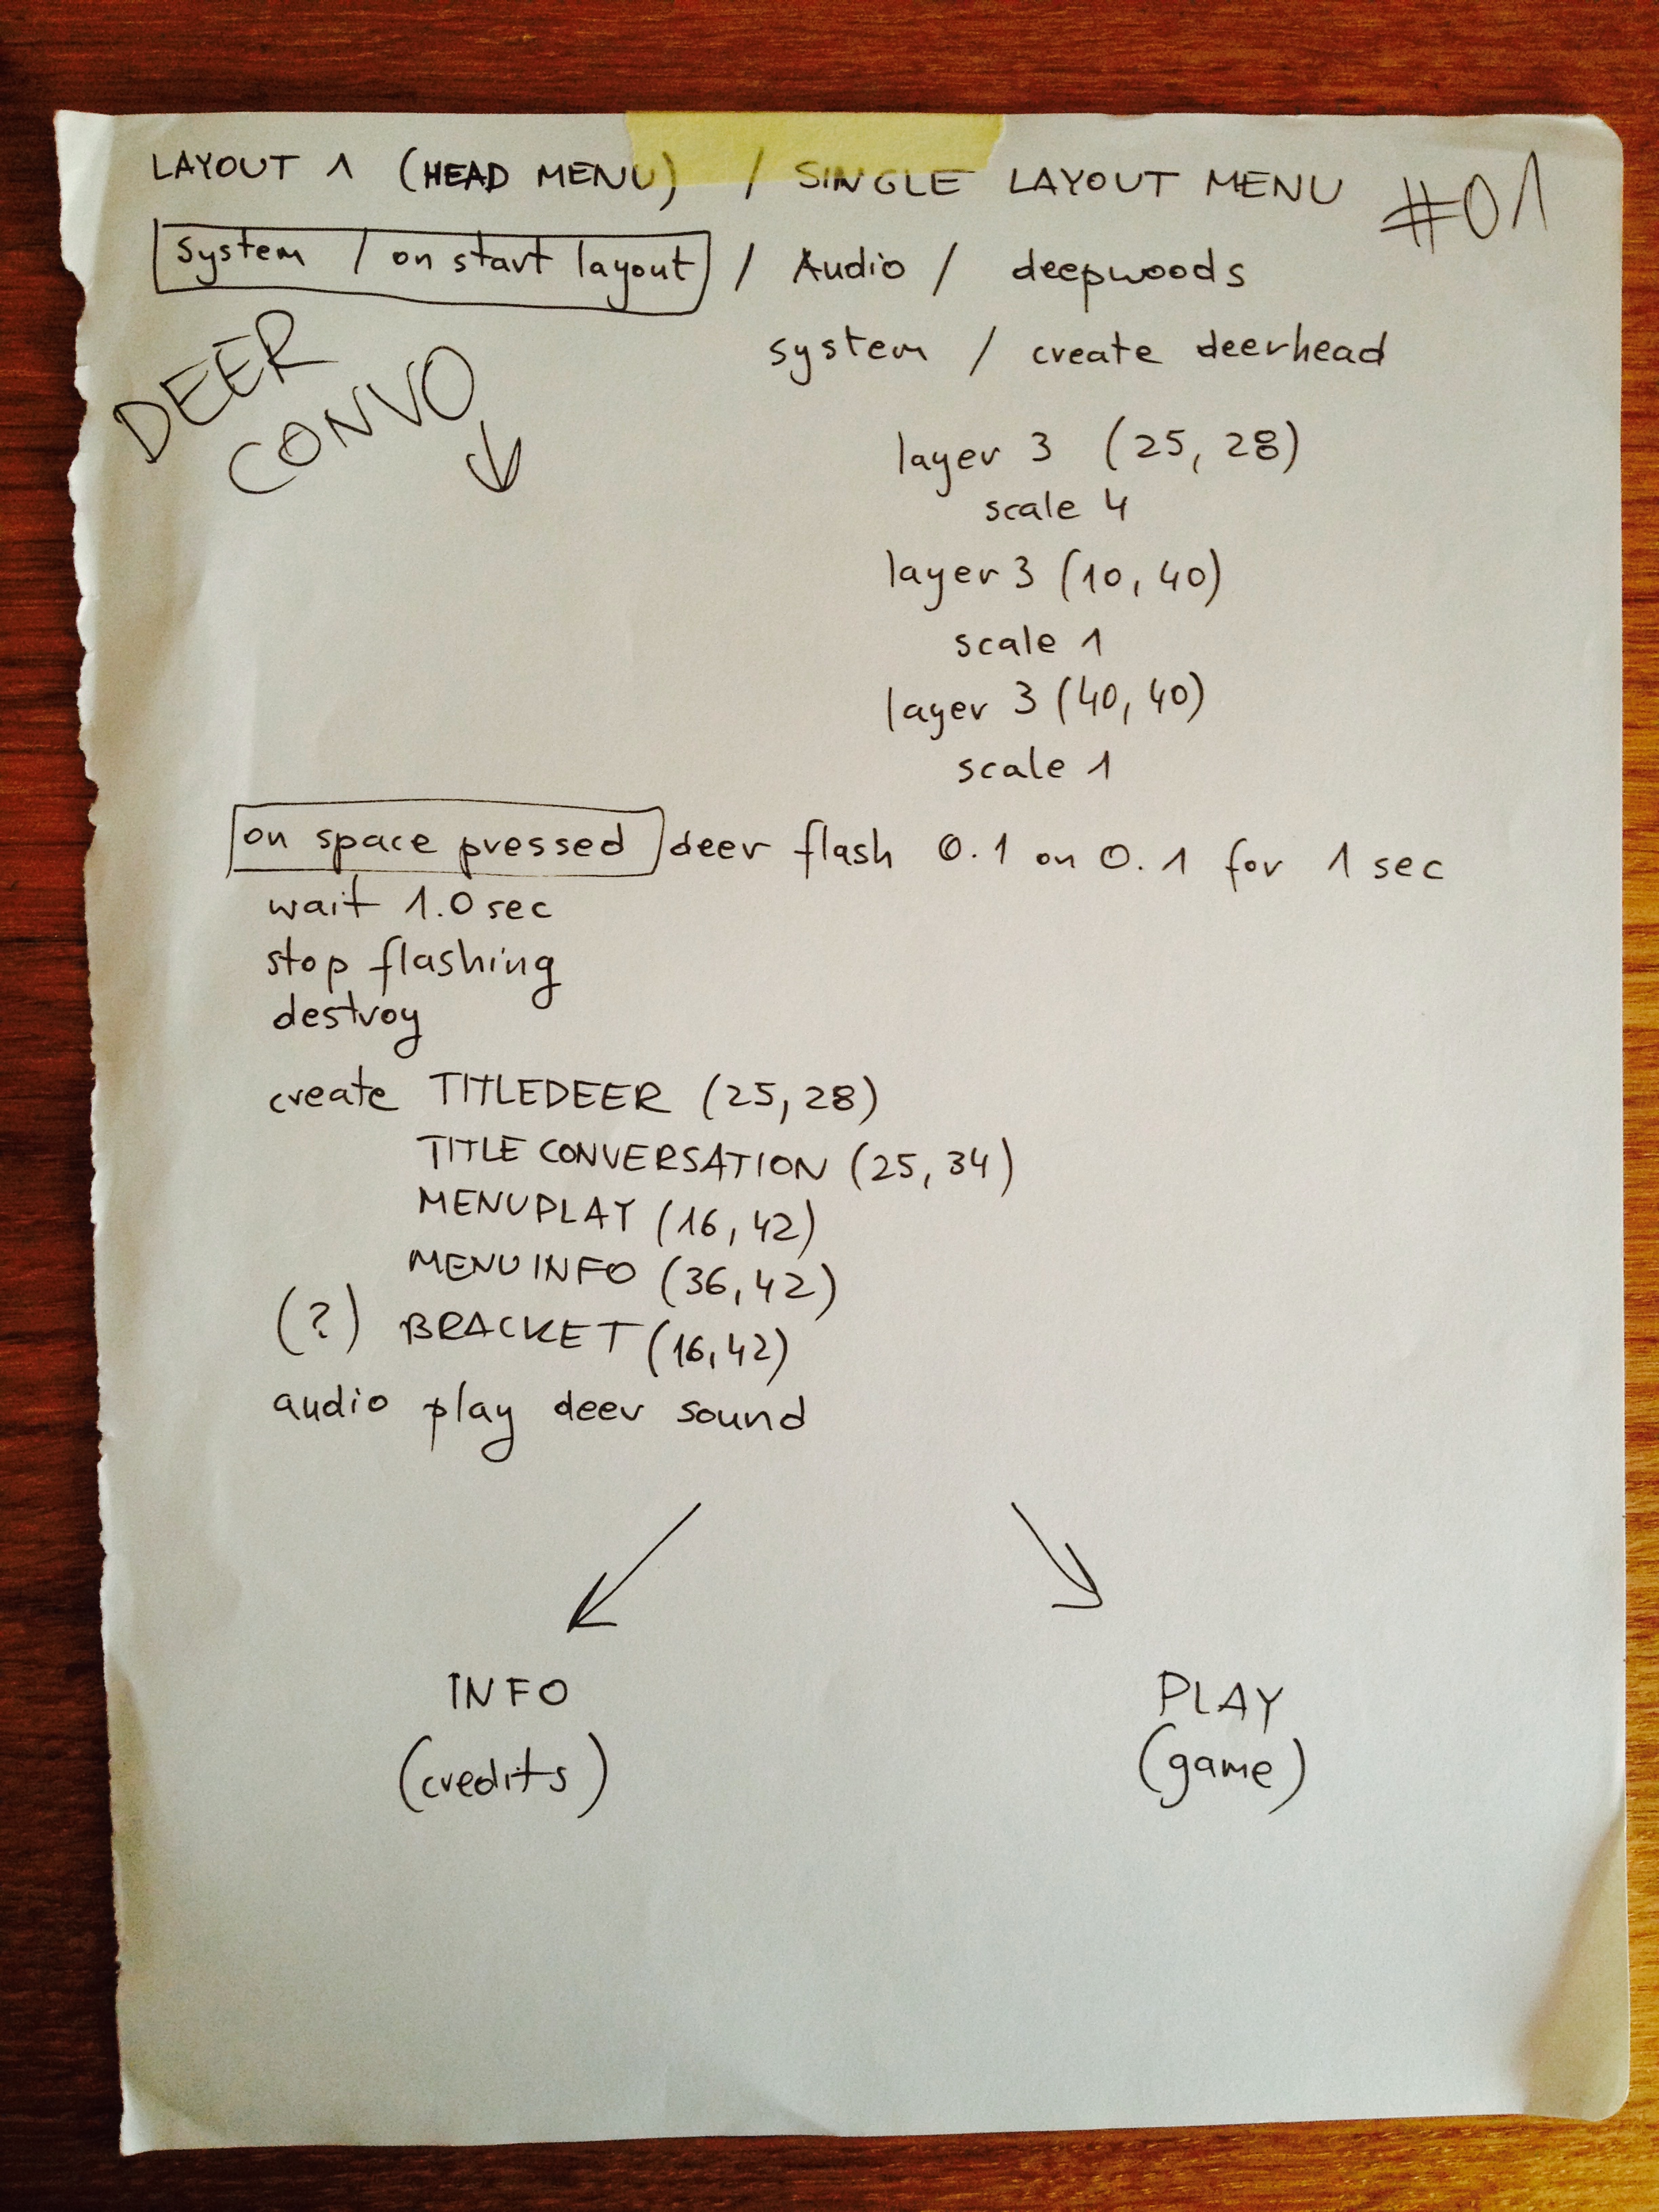 LAYOUT 1 (HEAD MENU) / SINGLE LAYOUT MENU
#01
system / on start layout / Audio / deepwoods
system / create deerhead
DEER
CONVO
layer 3 (25, 28)
scale 4
layer 3 (10, 40)
scale 1
layer 3 (40, 40)
scale 1
on space pressed deer flash 0.1 on 0.1 for 1 sec
wait 1.0 sec
stop flashing
destroy
create TITLEDEER (25, 28)
TITLE CONVERSATION (25, 34)
MENUPLAY (16, 42)
MENUINFO (36, 42)
(?) BRACKET (16, 42)
audio play deer sound
INFO
(credits)
PLAY
(game)